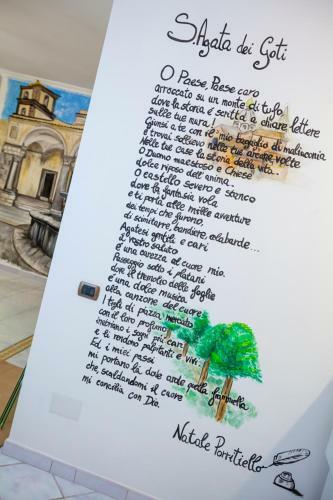 S.Agata dei Goti
O Paese, Paese caro
arroccato su un monte di tufo,
dove la storia è scritta a chiare lettere
sulle tue mura!
Giunsi a te con il mio bagaglio di malinconia
e trovai sollievo nelle tue arcate, volte
Nelle tue case la storia della vita..
O Duomo maestoso e Chiese
dolce riposo dell'anima..
O castello severo e stanco
dove la fantasia vola
e ti porta alle mille avventure
dei tempi che furono,
di scimitarre, bandiere, alabarde...
Agatesi gentili e cari
il vostro saluto
è una carezza al cuore mio.
Passeggio sotto i platani
dove il tremolio delle foglie
è una dolce musica
alla canzone del cuore
I tigli di piazza mercato
con il loro profumo
inebriano i sogni più cari
e li rendono palpitanti e vivi.
Ed i miei passi
mi portano là dove arde quella fiammella
che, scaldandomi il cuore
mi concilia con Dio.
Natale Porritiello